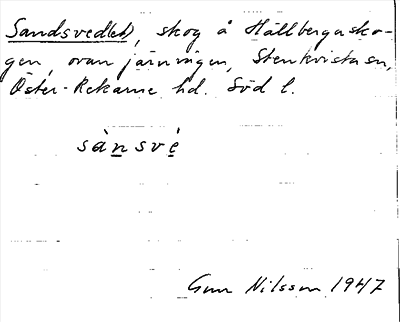 Sandsvedle(t), skog å Hällbergasko-
gen, ovan järnvägen, Stenkvista sn,
Öster-Rekarne hd. Södl.
sànsvè
Gun Nilsson 1947